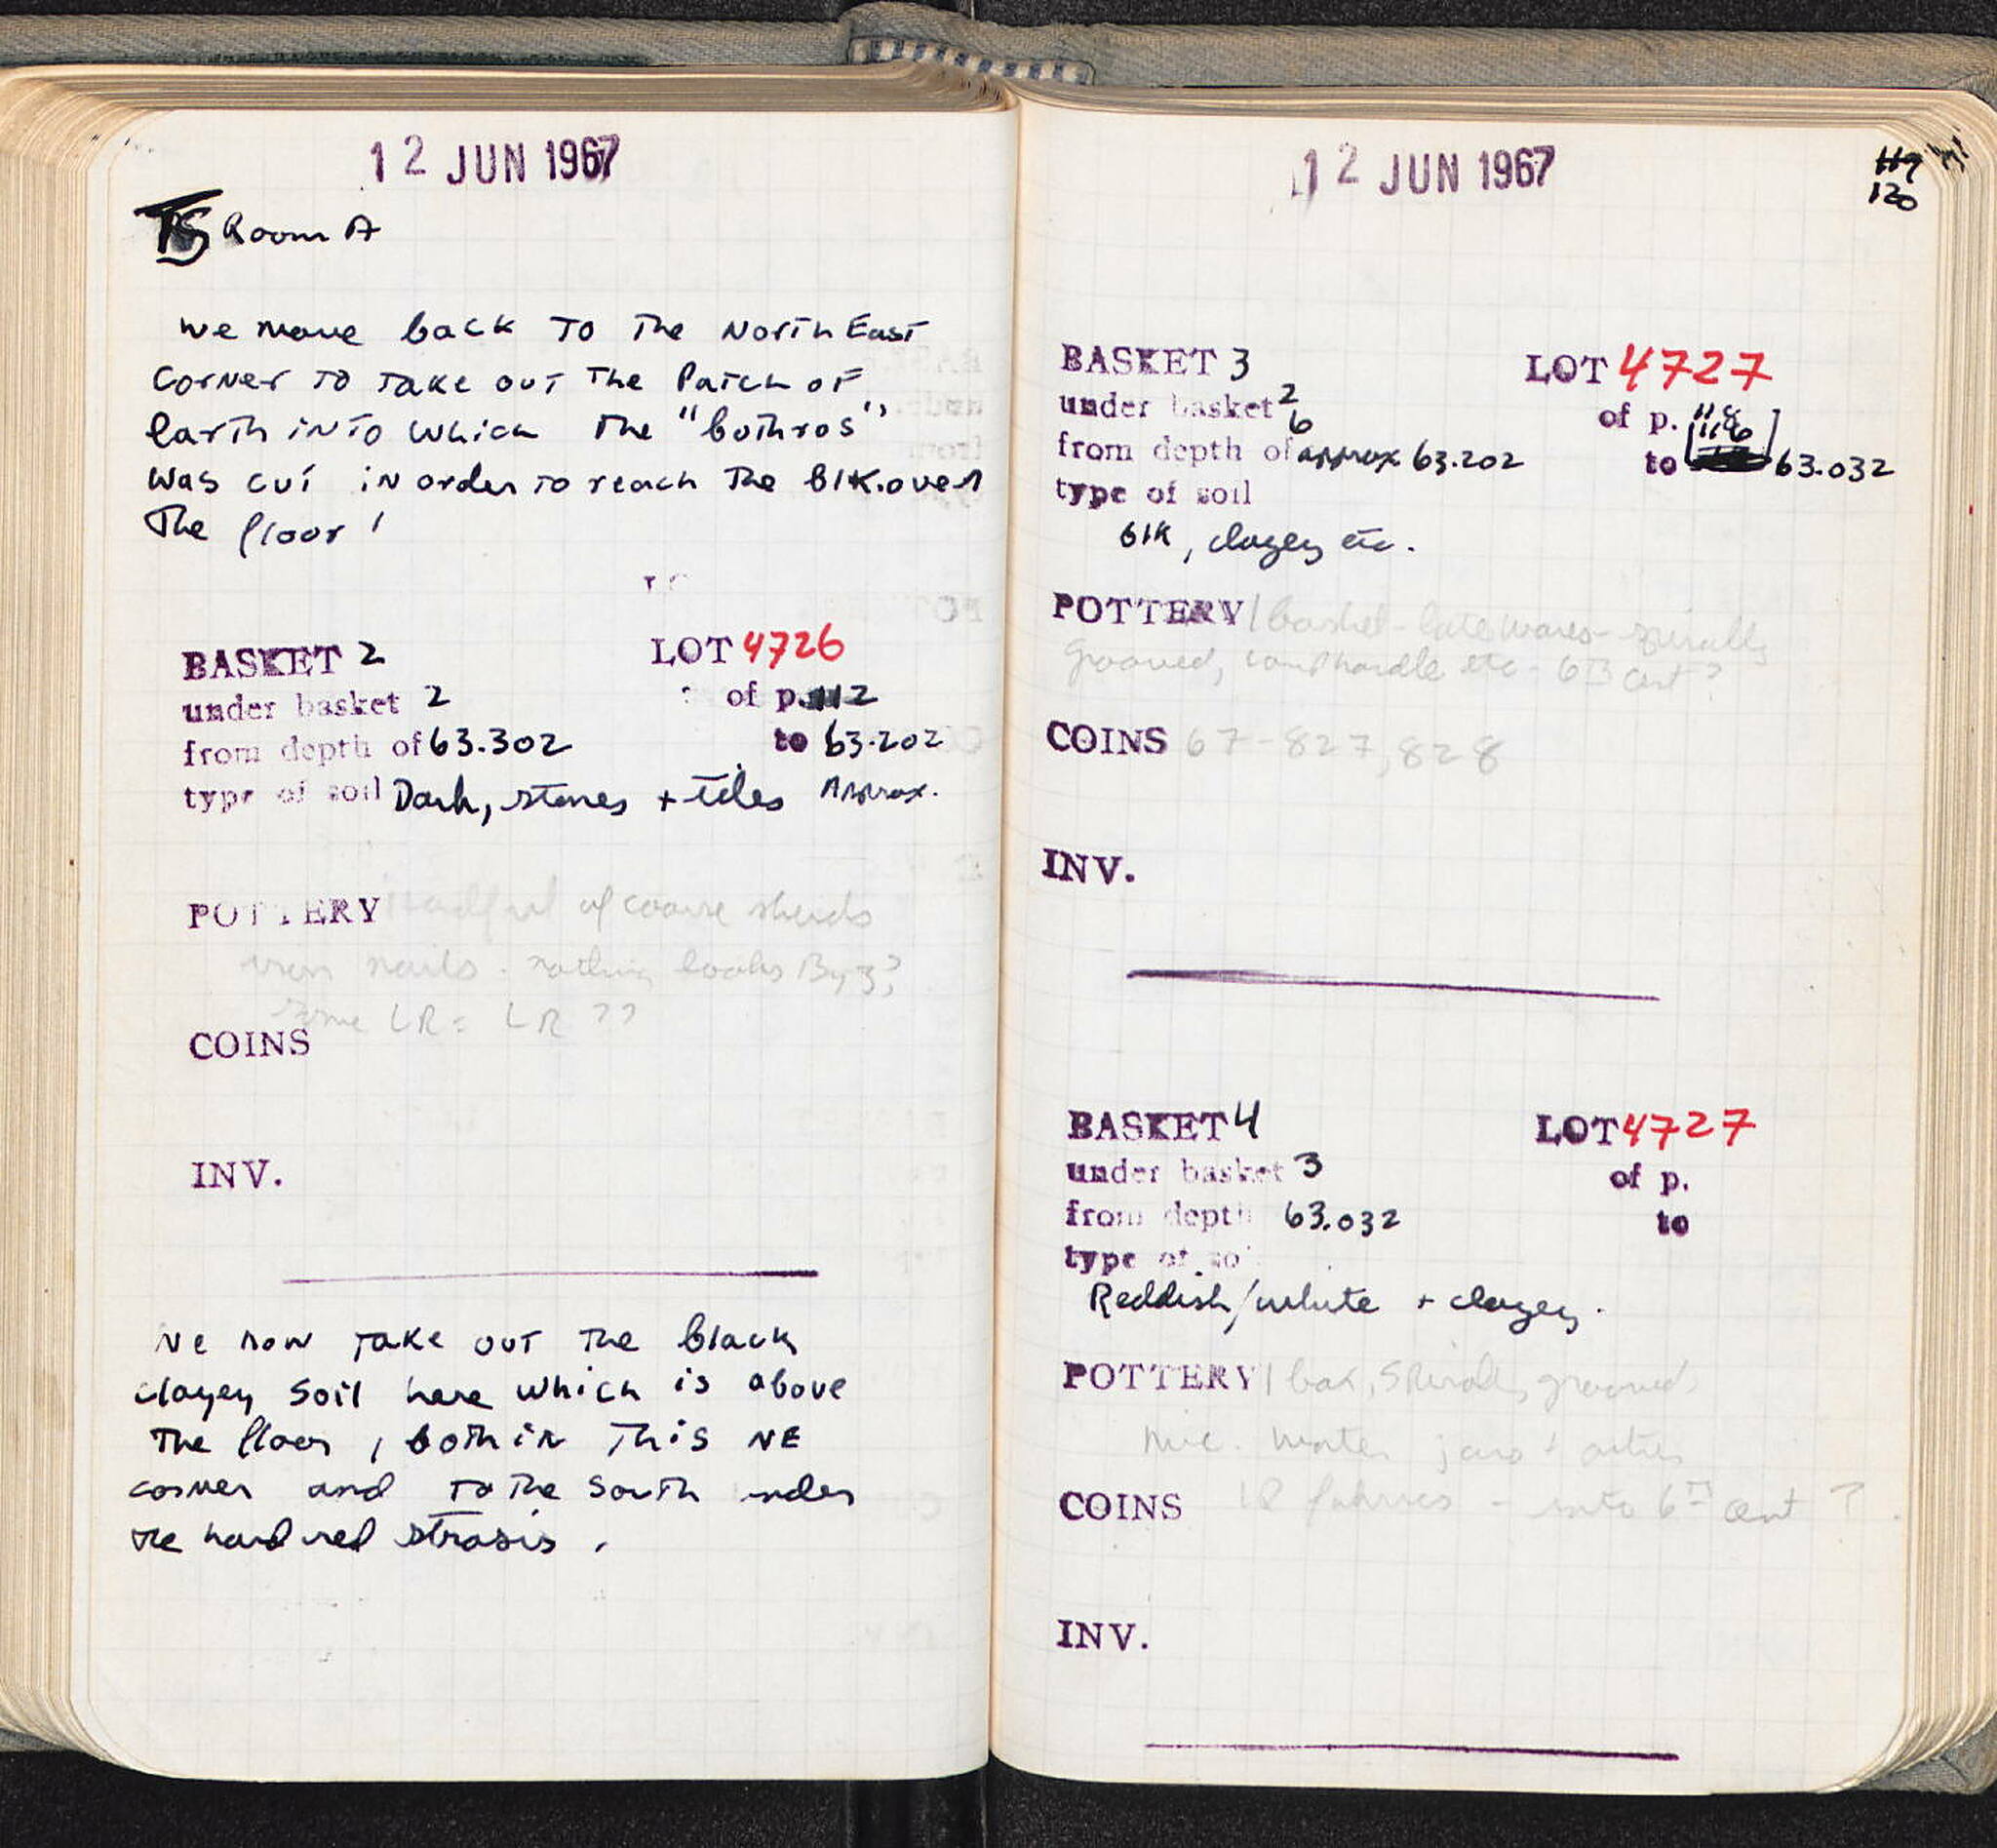 12 JUN 1967
Room A
we move back to the North East
corner to take out the Patch of
earth into which the "bothros"
was cut in order to reach the blk. over
the floor!
BASKET 2 LOT 4726
under basket 2 of p. 112
from depth of 63.302 to 63.202
type of soil Dark, stones + tiles Approx.
POTTERY handful of coarse sherds
iron nails. nothing looks Byz?
some LR = LR ??
COINS
INV.
We now take out the black
clayey soil here which is above
the floor, both in this NE
corner and to the South under
the hard red strosis.
12 JUN 1967
119
120
BASKET 3 LOT 4727
under basket 2 of p. 118
6 116
from depth of approx 63.202 to 63.032
type of soil
blk, clayey etc.
POTTERY 1 basket - late wares - spirally
grooved, handle etc - 6th cent?
COINS 67-827, 828
INV.
BASKET 4 LOT 4727
under basket 3 of p.
from depth 63.032 to
type of so
Reddish/white + clayey.
POTTERY 1 bax, spirally grooved
mic. water jars + other
LR fabrics - into 6th cent ?
COINS
INV.